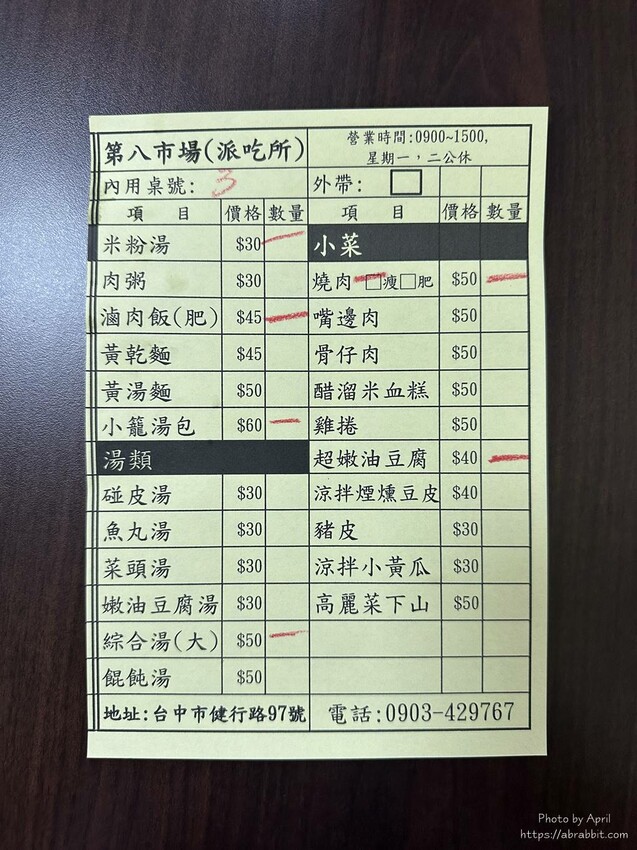 第八市場(派吃所)
營業時間:0900~1500,
星期一,二公休
內用桌號: 3
外帶: □
項 目 價格 數量 項 目 價格 數量
米粉湯 $30 一 小菜
肉粥 $30 燒肉 □瘦□肥 $50 一
滷肉飯(肥) $45 一 嘴邊肉 $50
黃乾麵 $45 骨仔肉 $50
黃湯麵 $50 醋溜米血糕 $50
小籠湯包 $60 一 雞捲 $50
湯類 超嫩油豆腐 $40 一
碰皮湯 $30 涼拌煙燻豆皮 $40
魚丸湯 $30 豬皮 $30
菜頭湯 $30 涼拌小黃瓜 $30
嫩油豆腐湯 $30 高麗菜下山 $50
綜合湯(大) $50 一
餛飩湯 $50
地址:台中市健行路97號 電話:0903-429767
Photo by April
https://abrabbit.com